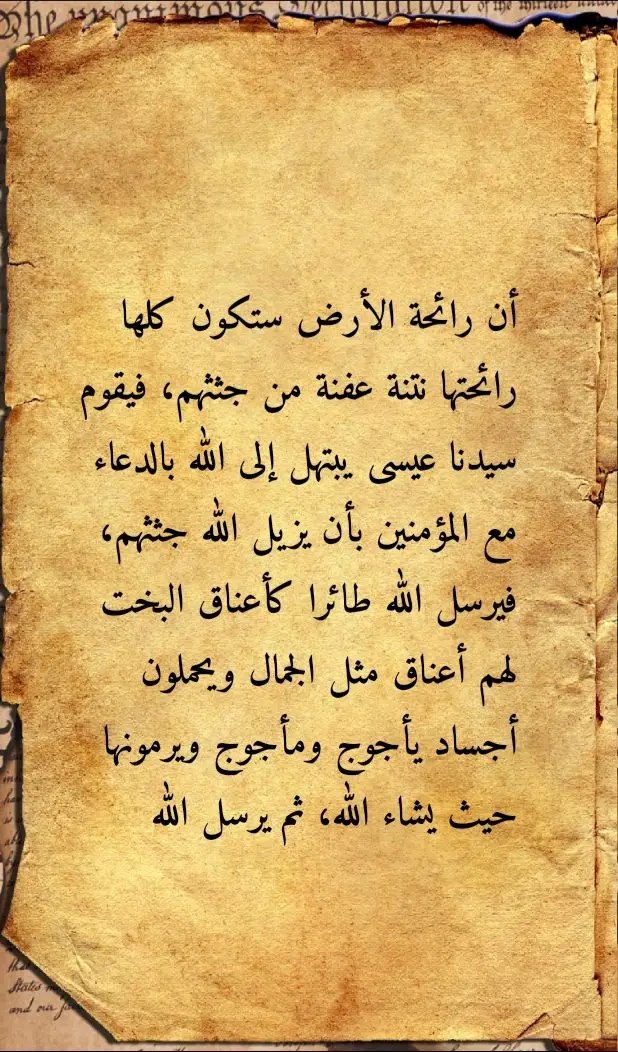 The unanimous Declaration of the thirteen united
أن رائحة الأرض ستكون كلها
رائحتها نتنة عفنة من جثثهم، فيقوم
سيدنا عيسى يبتهل إلى الله بالدعاء
مع المؤمنين بأن يزيل الله جثثهم،
فيرسل الله طائرا كأعناق البخت
لهم أعناق مثل الجمال ويحملون
أجساد يأجوج ومأجوج ويرمونها
حيث يشاء الله، ثم يرسل الله
States
and our